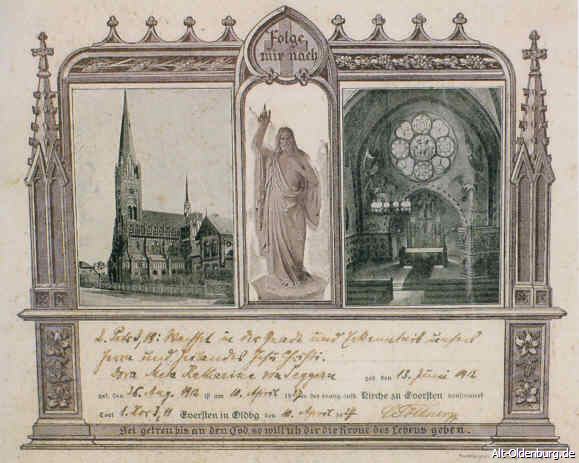 Folge
mir nach
2. Petr 3, 18: Wachset in der Gnade und Erkenntnis unsers
Herrn und Heilandes Jesu Christi.
Dora Meta Katharine von Seggern geb. den 13. Juni 1912
get. den 26. Aug. 1912 ist am 10. April in der evang.-luth. Kirche zu Eversten konfirmiert
Text 1. Kor 3, 11 Eversten in Oldbg den 10. April
Sei getreu bis an den Tod, so will ich dir die Krone des Lebens geben.
Alt-Oldenburg.de